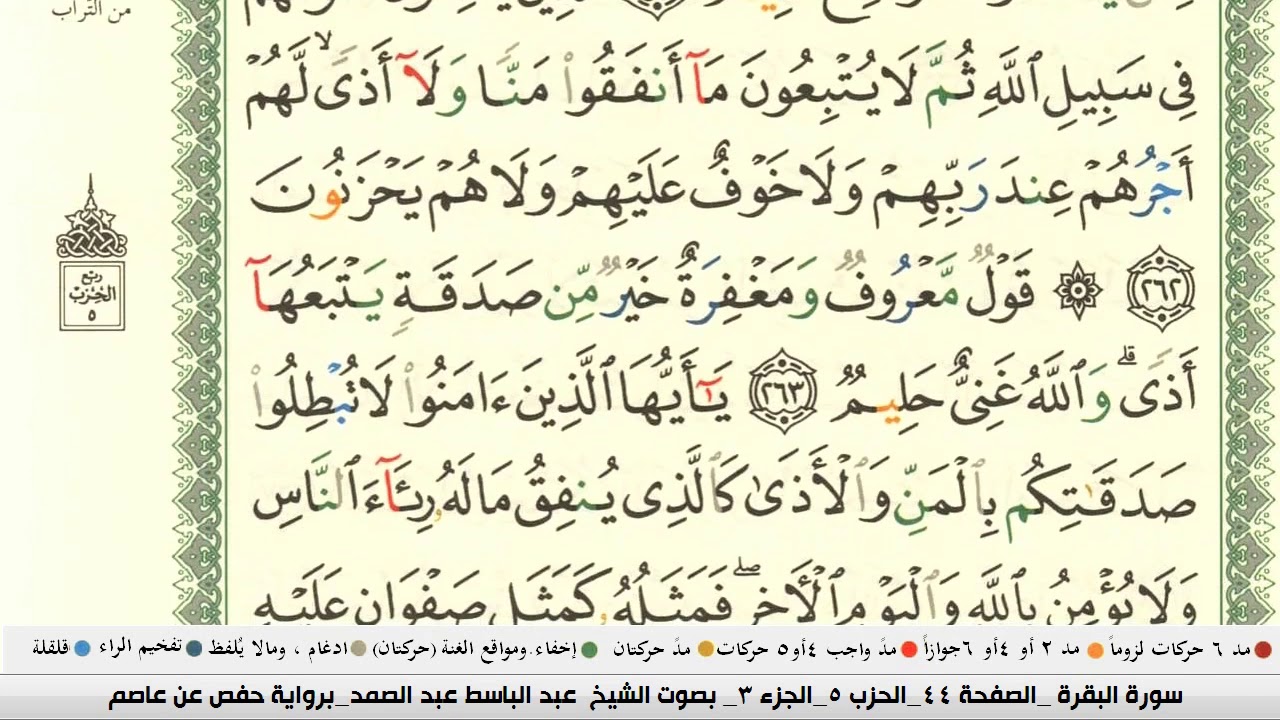 من التراب
فِى سَبِيلِ ٱللَّهِ ثُمَّ لَا يُتْبِعُونَ مَآ أَنفَقُوا۟ مَنًّا وَلَآ أَذًى ۙ لَّهُمْ
أَجْرُهُمْ عِندَ رَبِّهِمْ وَلَا خَوْفٌ عَلَيْهِمْ وَلَا هُمْ يَحْزَنُونَ
٢٦٢ ۞ قَوْلٌ مَّعْرُوفٌ وَمَغْفِرَةٌ خَيْرٌ مِّن صَدَقَةٍ يَتْبَعُهَآ
أَذًى ۗ وَٱللَّهُ غَنِىٌّ حَلِيمٌ ٢٦٣ يَـٰٓأَيُّهَا ٱلَّذِينَ ءَامَنُوا۟ لَا تُبْطِلُوا۟
صَدَقَـٰتِكُم بِٱلْمَنِّ وَٱلْأَذَىٰ كَٱلَّذِى يُنفِقُ مَالَهُۥ رِئَآءَ ٱلنَّاسِ
وَلَا يُؤْمِنُ بِٱللَّهِ وَٱلْيَوْمِ ٱلْـَٔاخِرِ ۖ فَمَثَلُهُۥ كَمَثَلِ صَفْوَانٍ عَلَيْهِ
ربع
الحزب
٥
مد ٦ حركات لزوماً مد ٢ أو ٤ أو ٦ جوازاً مدّ واجب ٤ أو ٥ حركات مدّ حركتان إخفاء. ومواقع الغنة (حركتان) ادغام ، ومالا يُلفظ تفخيم الراء قلقلة
سورة البقرة _الصفحة ٤٤_الحزب ٥_الجزء ٣_ بصوت الشيخ عبد الباسط عبد الصمد_برواية حفص عن عاصم